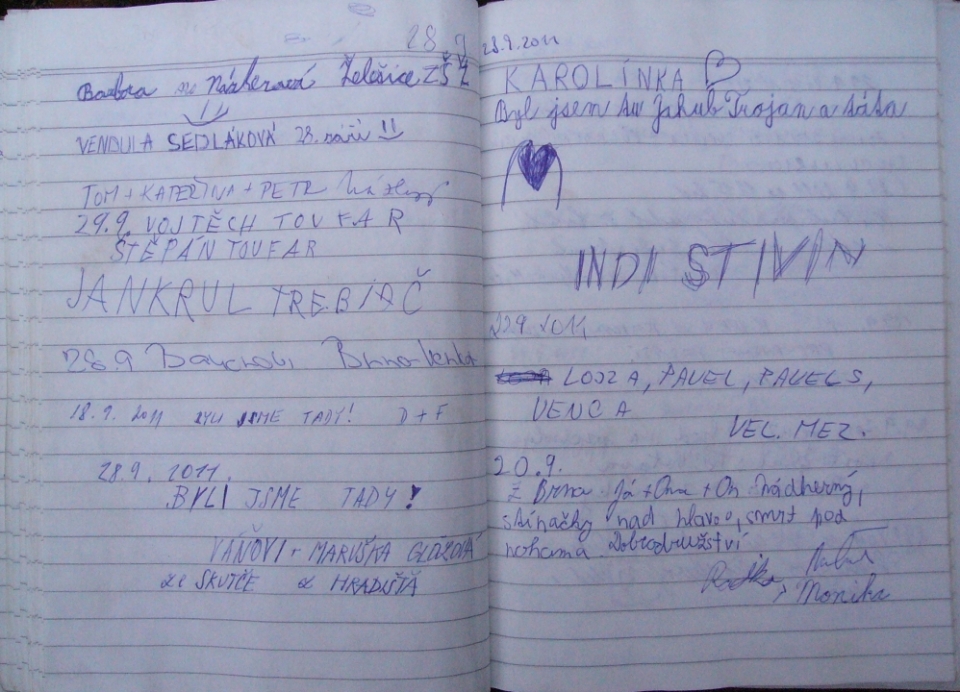 28.9
Barbora Náherová Želešice ZŠ Ž
VENDULA SEDLÁKOVÁ 28. září
TOM + KATEŘINA + PETR
29.9. VOJTĚCH TOUFAR
ŠTĚPÁN TOUFAR
JAN KRUL TREBIAČ
28.9 Brno-venkov
18.9. 2011 BYLI JSME TADY! D + F
28.9. 2011.
BYLI JSME TADY!
VÁŇOVI + MARUŠKA
ZE SKUTČE Z HRADIŠTĚ
28.9.2011
KAROLÍNKA
Byl jsem tu Jakub Trojan a táta
INDI STIVIN
29.9. 2011
LOJZA, PAVEL, PAVEL S,
VENCA
VEL. MEZ.
20.9.
Z Brna Já + Ona + On nádherný,
stínačky nad hlavou, smrt pod
nohama Dobrodružství
Radka,
Monika